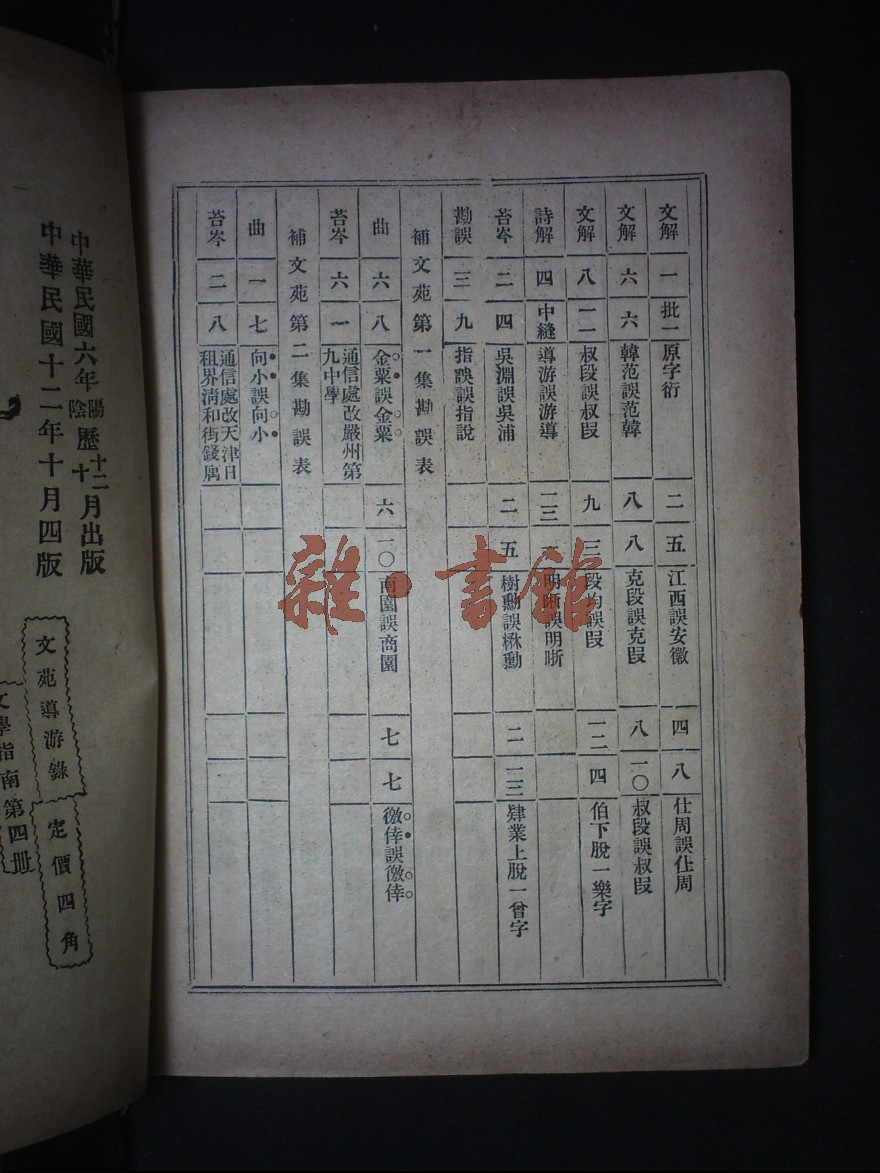 文解 一 批一 原字衍 二 五 江西誤安徽 四 八 仕周誤仕周
文解 六 六 韓范誤范韓 八 八 克段誤克叚 八 一〇 叔段誤叔叚
文解 八 一二 叔段誤叔叚 九 三 段均誤叚 一二 四 伯下脫一樂字
詩解 四 中縫 導游誤游導 一三 一 明晣誤明晰
苔岑 二 四 吳淵誤吳浦 二 五 樹勳誤楙勳 二 一三 肄業上脫一曾字
勘誤 三 九 指誤誤指說
補文苑第一集勘誤表
曲 六 八 金粟誤金粟 六 一〇 南園誤商園 七 七 徼倖誤徼倖
苔岑 六 一 通信處改嚴州第
九中學
補文苑第二集勘誤表
曲 一 七 向小誤向小
苔岑 二 八 通信處改天津日
租界淸和街錢㝢
中華民國六年陽陰歷十二十月出版
中華民國十二年十月四版
文苑導游錄 定價四角
文學指南第四册
雜·書館